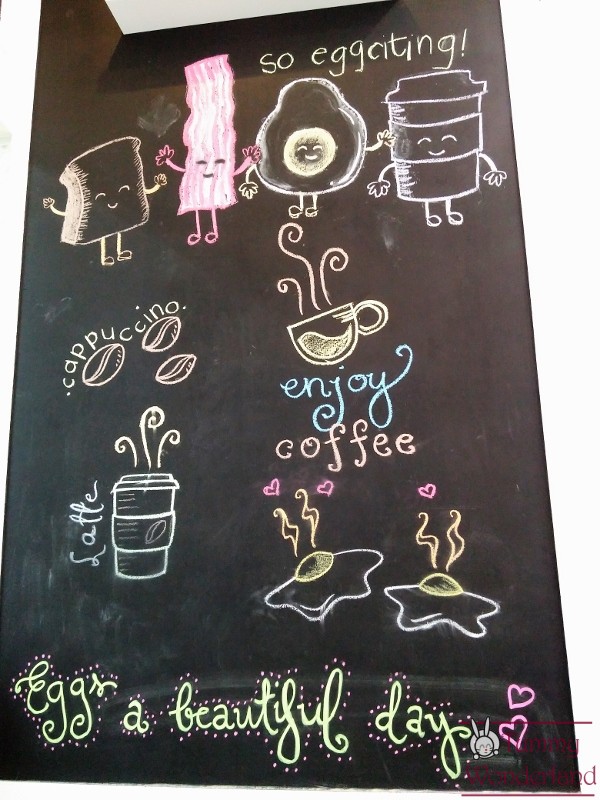 so eggciting!
cappuccino.
enjoy
coffee
Latte
Eggs a beautiful day
Yummy
Wonderland